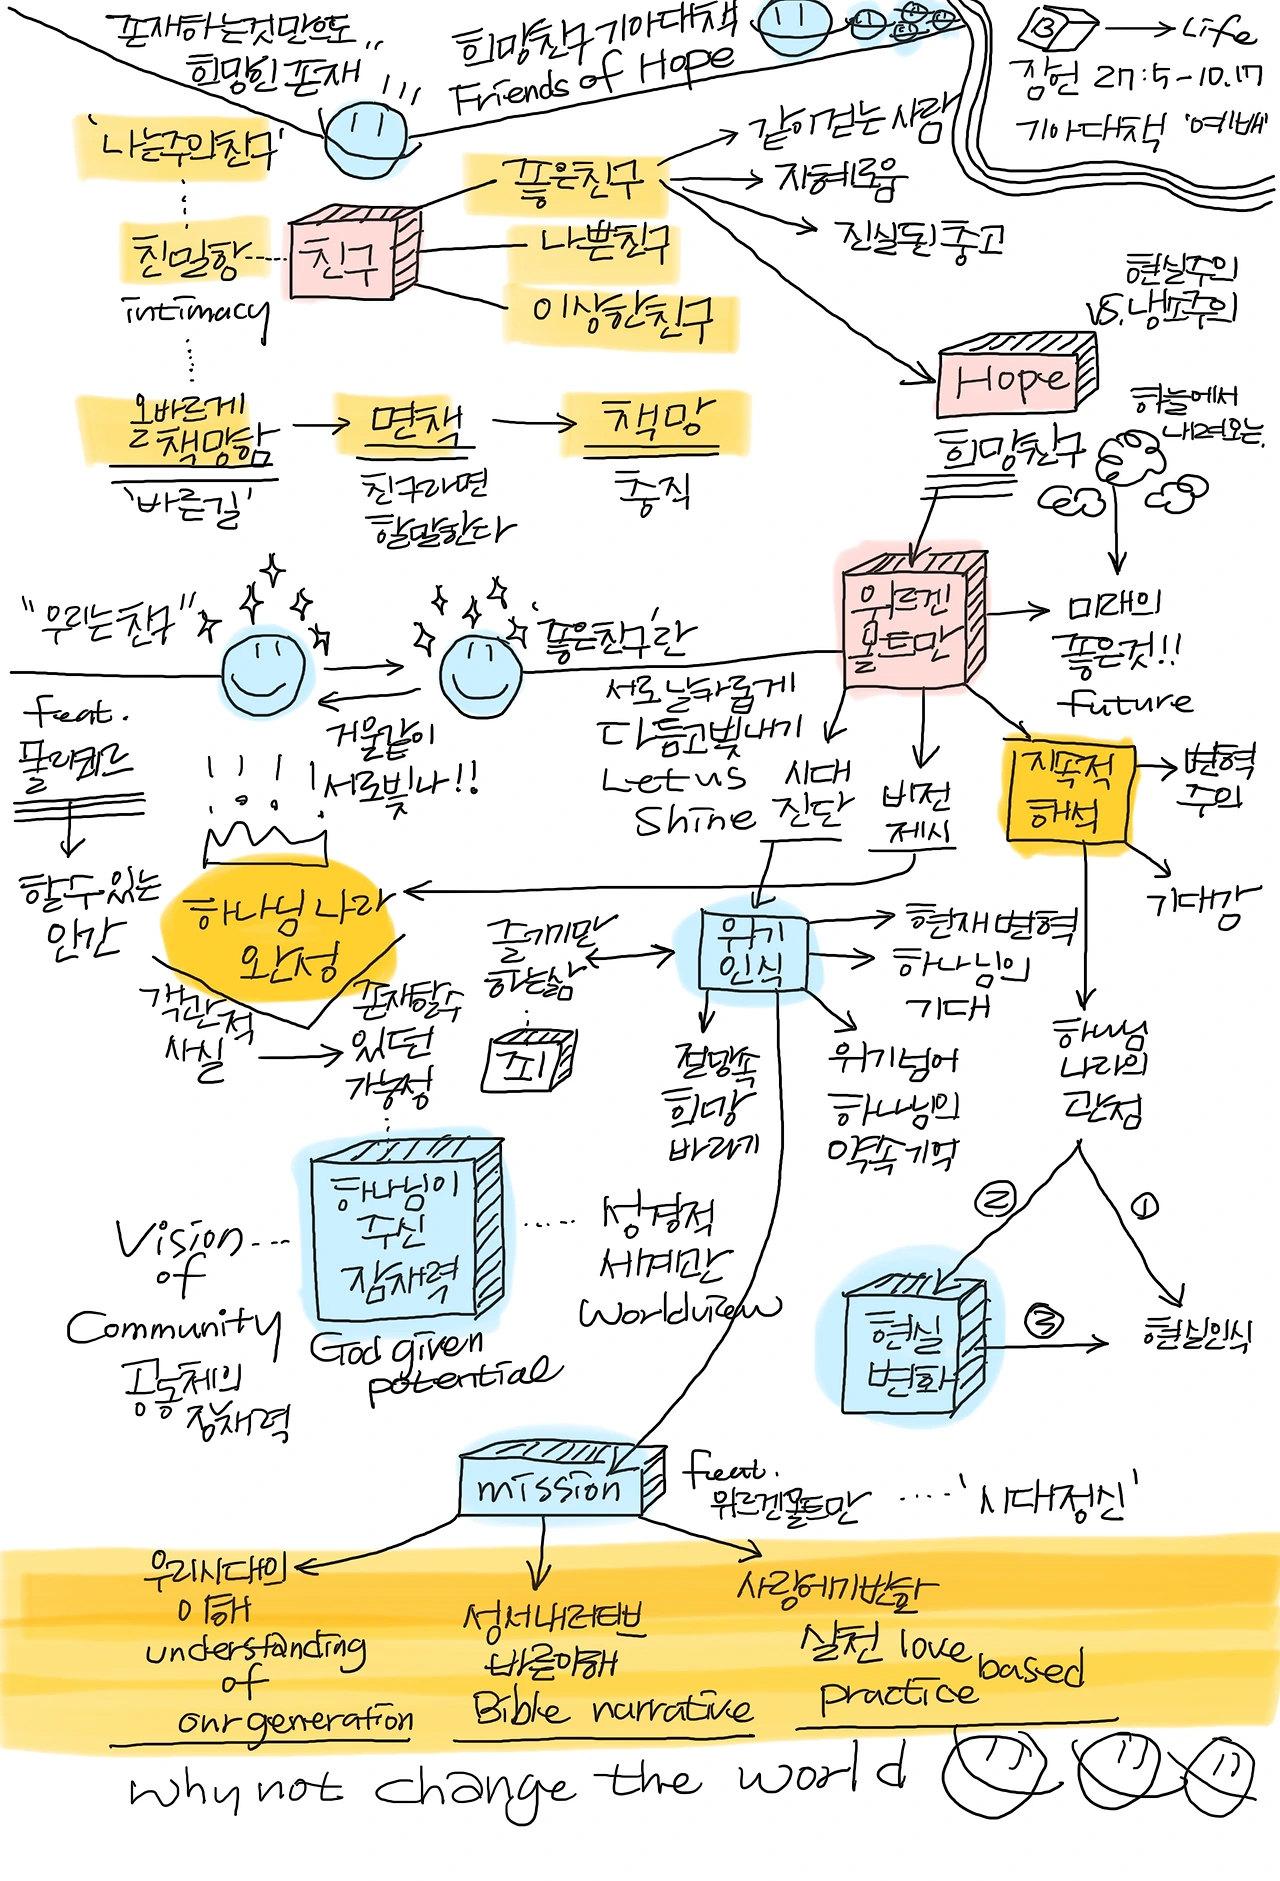 존재하는것만으로
희망인 존재
희망친구 기아대책
Friends of Hope
B → Life
잠언 27:5-10.17
기아대책 '예배'
'나는주의친구'
친밀함
intimacy
친구
좋은친구
나쁜친구
이상한친구
같이걷는 사람
지혜로움
진실된 충고
현실주의
vs. 냉소주의
Hope
희망친구
하늘에서
내려오는
올바르게
책망함
'바른길'
면책
친구라면
할말한다
책망
충직
"우리는친구"
feat.
폴리쾨르
할수있는
인간
거울같이
서로빛나!!
'좋은친구'란
서로날카롭게
다듬고빛내기
Let us
Shine
위르겐
몰트만
미래의
좋은것!!
future
시대
진단
비전
제시
지속적
해석
변혁
주의
기대감
하나님 나라
완성
객관적
사실
존재할수
있던
가능성
즐기기만
하는삶
죄
위기
인식
현재변혁
하나님의
기대
절망속
희망
바라기
위기넘어
하나님의
약속기억
하나님
나라의
관점
①
②
③
현실
변화
현실인식
하나님이
주신
잠재력
God given
potential
Vision
of
Community
공동체의
잠재력
성경적
세계관
Worldview
mission
feat.
위르겐몰트만
'시대정신'
우리시대의
이해
understanding
of
our generation
성서내러티브
바른이해
Bible narrative
사랑에기반한
실천 love
based
practice
why not change the world